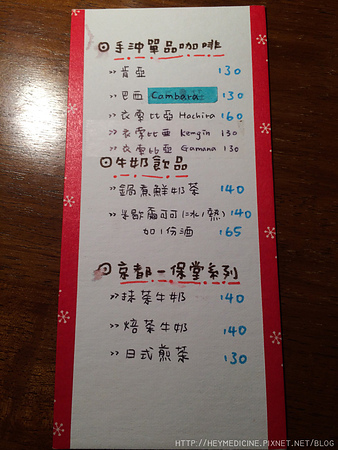 ⊙手沖單品咖啡
>> 肯亞 130
>> 巴西 Cambara 130
>> 衣索比亞 Hachira 160
>> 衣索比亞 Kengin 130
>> 衣索比亞 Gamana 130
⊙牛奶飲品
>> 鍋煮鮮奶茶 140
>> 米歇爾可可(冰/熱) 140
加1份酒 165
⊙京都一保堂系列
>> 抹茶牛奶 140
>> 焙茶牛奶 140
>> 日式煎茶 130
HTTP://HEYMEDICINE.PIXNET.NET/BLOG